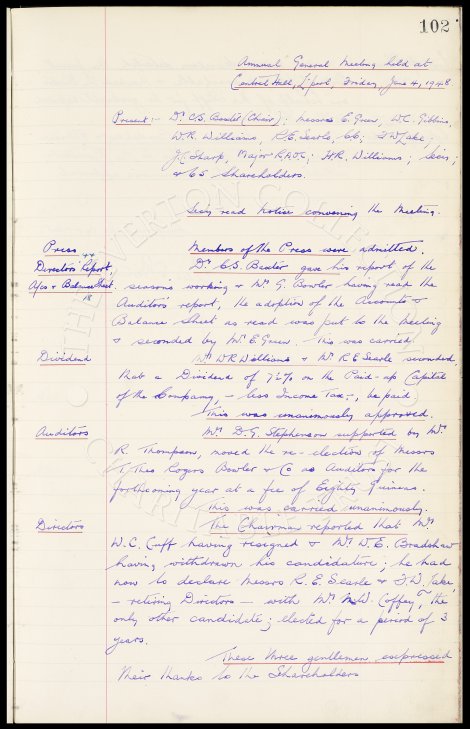 102
Annual General Meeting held at
Central Hall, L'pool, Friday, June 4, 1948
Present:- Dr. C.S. Baxter (Chair); Messrs E. Green, W.C. Gibbins,
W.R. Williams, R.E. Searle, F.W. Lake,
J.C. Sharp, Major R.A.D.C.; H.R. Williams; Secy;
& 65 Shareholders.
Secy read notice convening the Meeting.
Press Members of the Press were admitted.
Directors' Report Dr. C.S. Baxter gave his report of the
A/cs & Balance Sheet season's working & Mr G. Bowler having read the
18 Auditors report, the adoption of the Accounts &
Balance Sheet as read was put to the Meeting
& seconded by Mr E. Green. This was carried
Dividend Mr W R Williams & Mr R E Searle seconded,
that a Dividend of 7½% on the Paid-up Capital
of the Company, - less Income Tax -, be paid
This was unanimously approved.
Auditors Mr D. G. Stephenson supported by Mr
R. Thompson, moved the re-election of Messrs
T. Theo Rogers Bowler & Co as Auditors for the
forthcoming year at a fee of Eighty Guineas.
This was carried unanimously.
Directors The Chairman reported that Mr
W.C. Cuff having resigned & Mr W.E. Bradshaw
having withdrawn his candidature; he had
now to declare Messrs R. E. Searle & F.W. Lake,
- retiring Directors - with Mr M.W. Coffey, the
only other candidate; elected for a period of 3
years.
These three gentlemen expressed
their thanks to the Shareholders